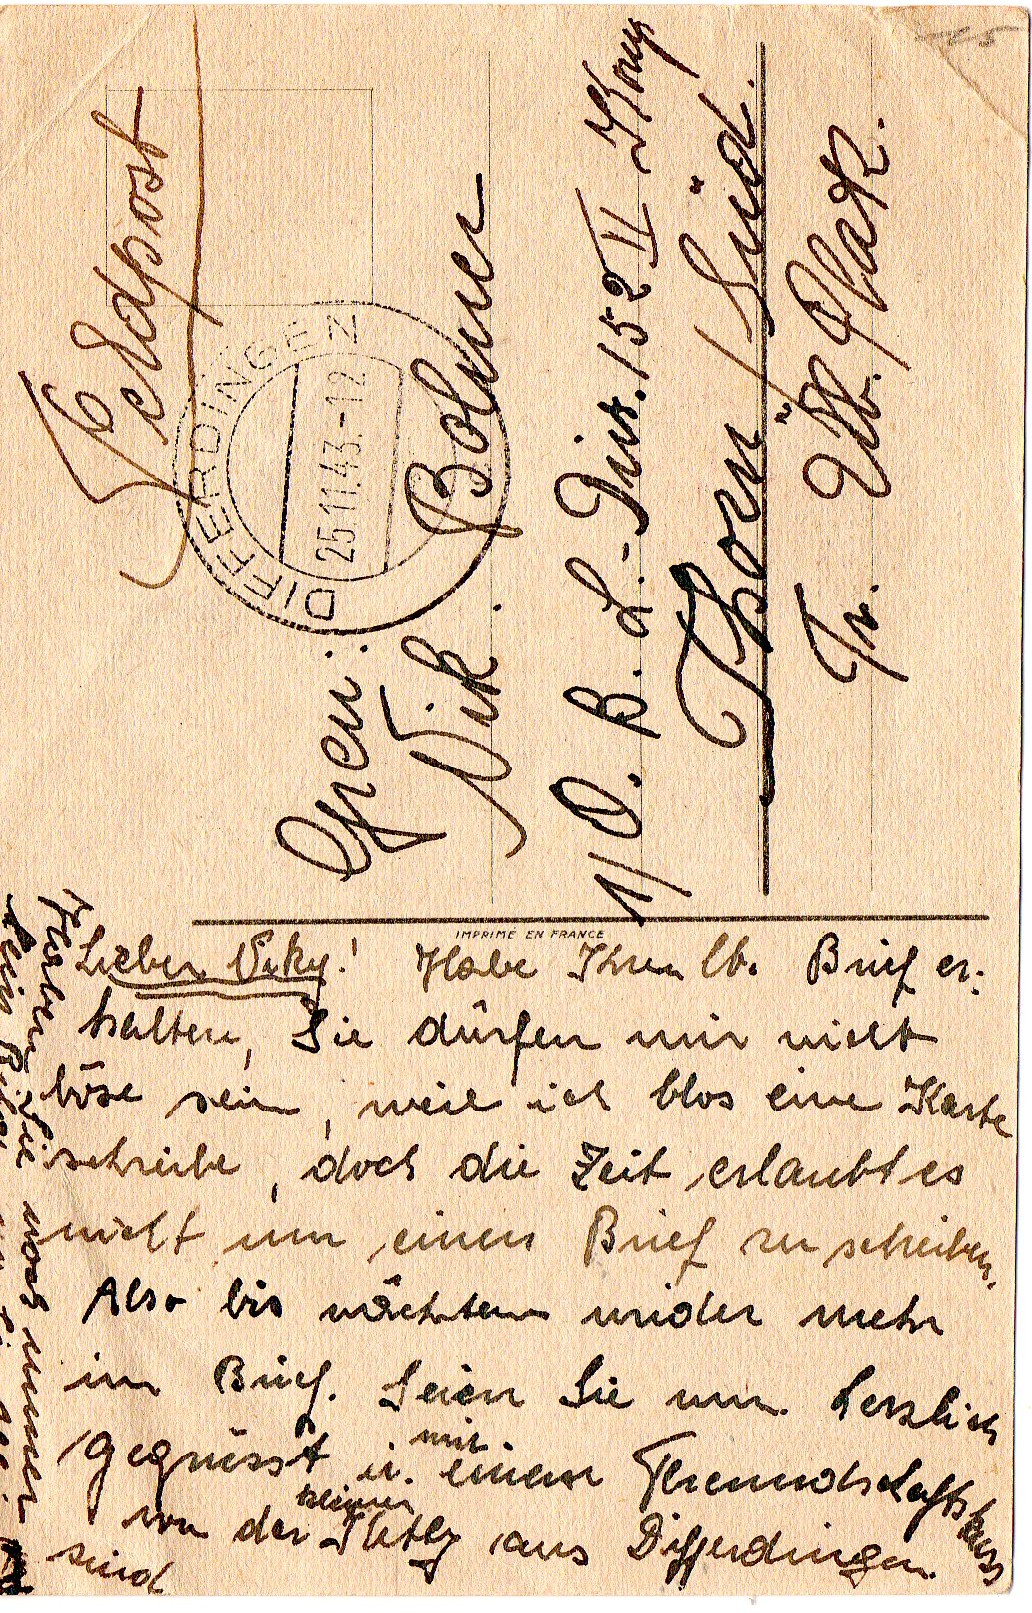 15
Feldpost
DIFFERDINGEN
25.11.43.-12
Gren:
Nik. Bolmer
1/O. B. L.-Diw. 152 II Komp
Thorn/Süd.
Üb. Platz.
IMPRIMÉ EN FRANCE
Lieber Niky! Habe Ihren lb. Brief er:
halten, Sie dürfen mir nicht
böse sein, weil ich blos eine Karte
schreibe, doch die Zeit erlaubt es
nicht um einen Brief zu schreiben.
Also bis nächstens wieder mehr
im Brief. Seien Sie nun herzlich
gegrüsst u. mit einem Freundschaftskuss
von der kleinen Ketty aus Differdingen.
Haben Sie noch immer
kein
sind